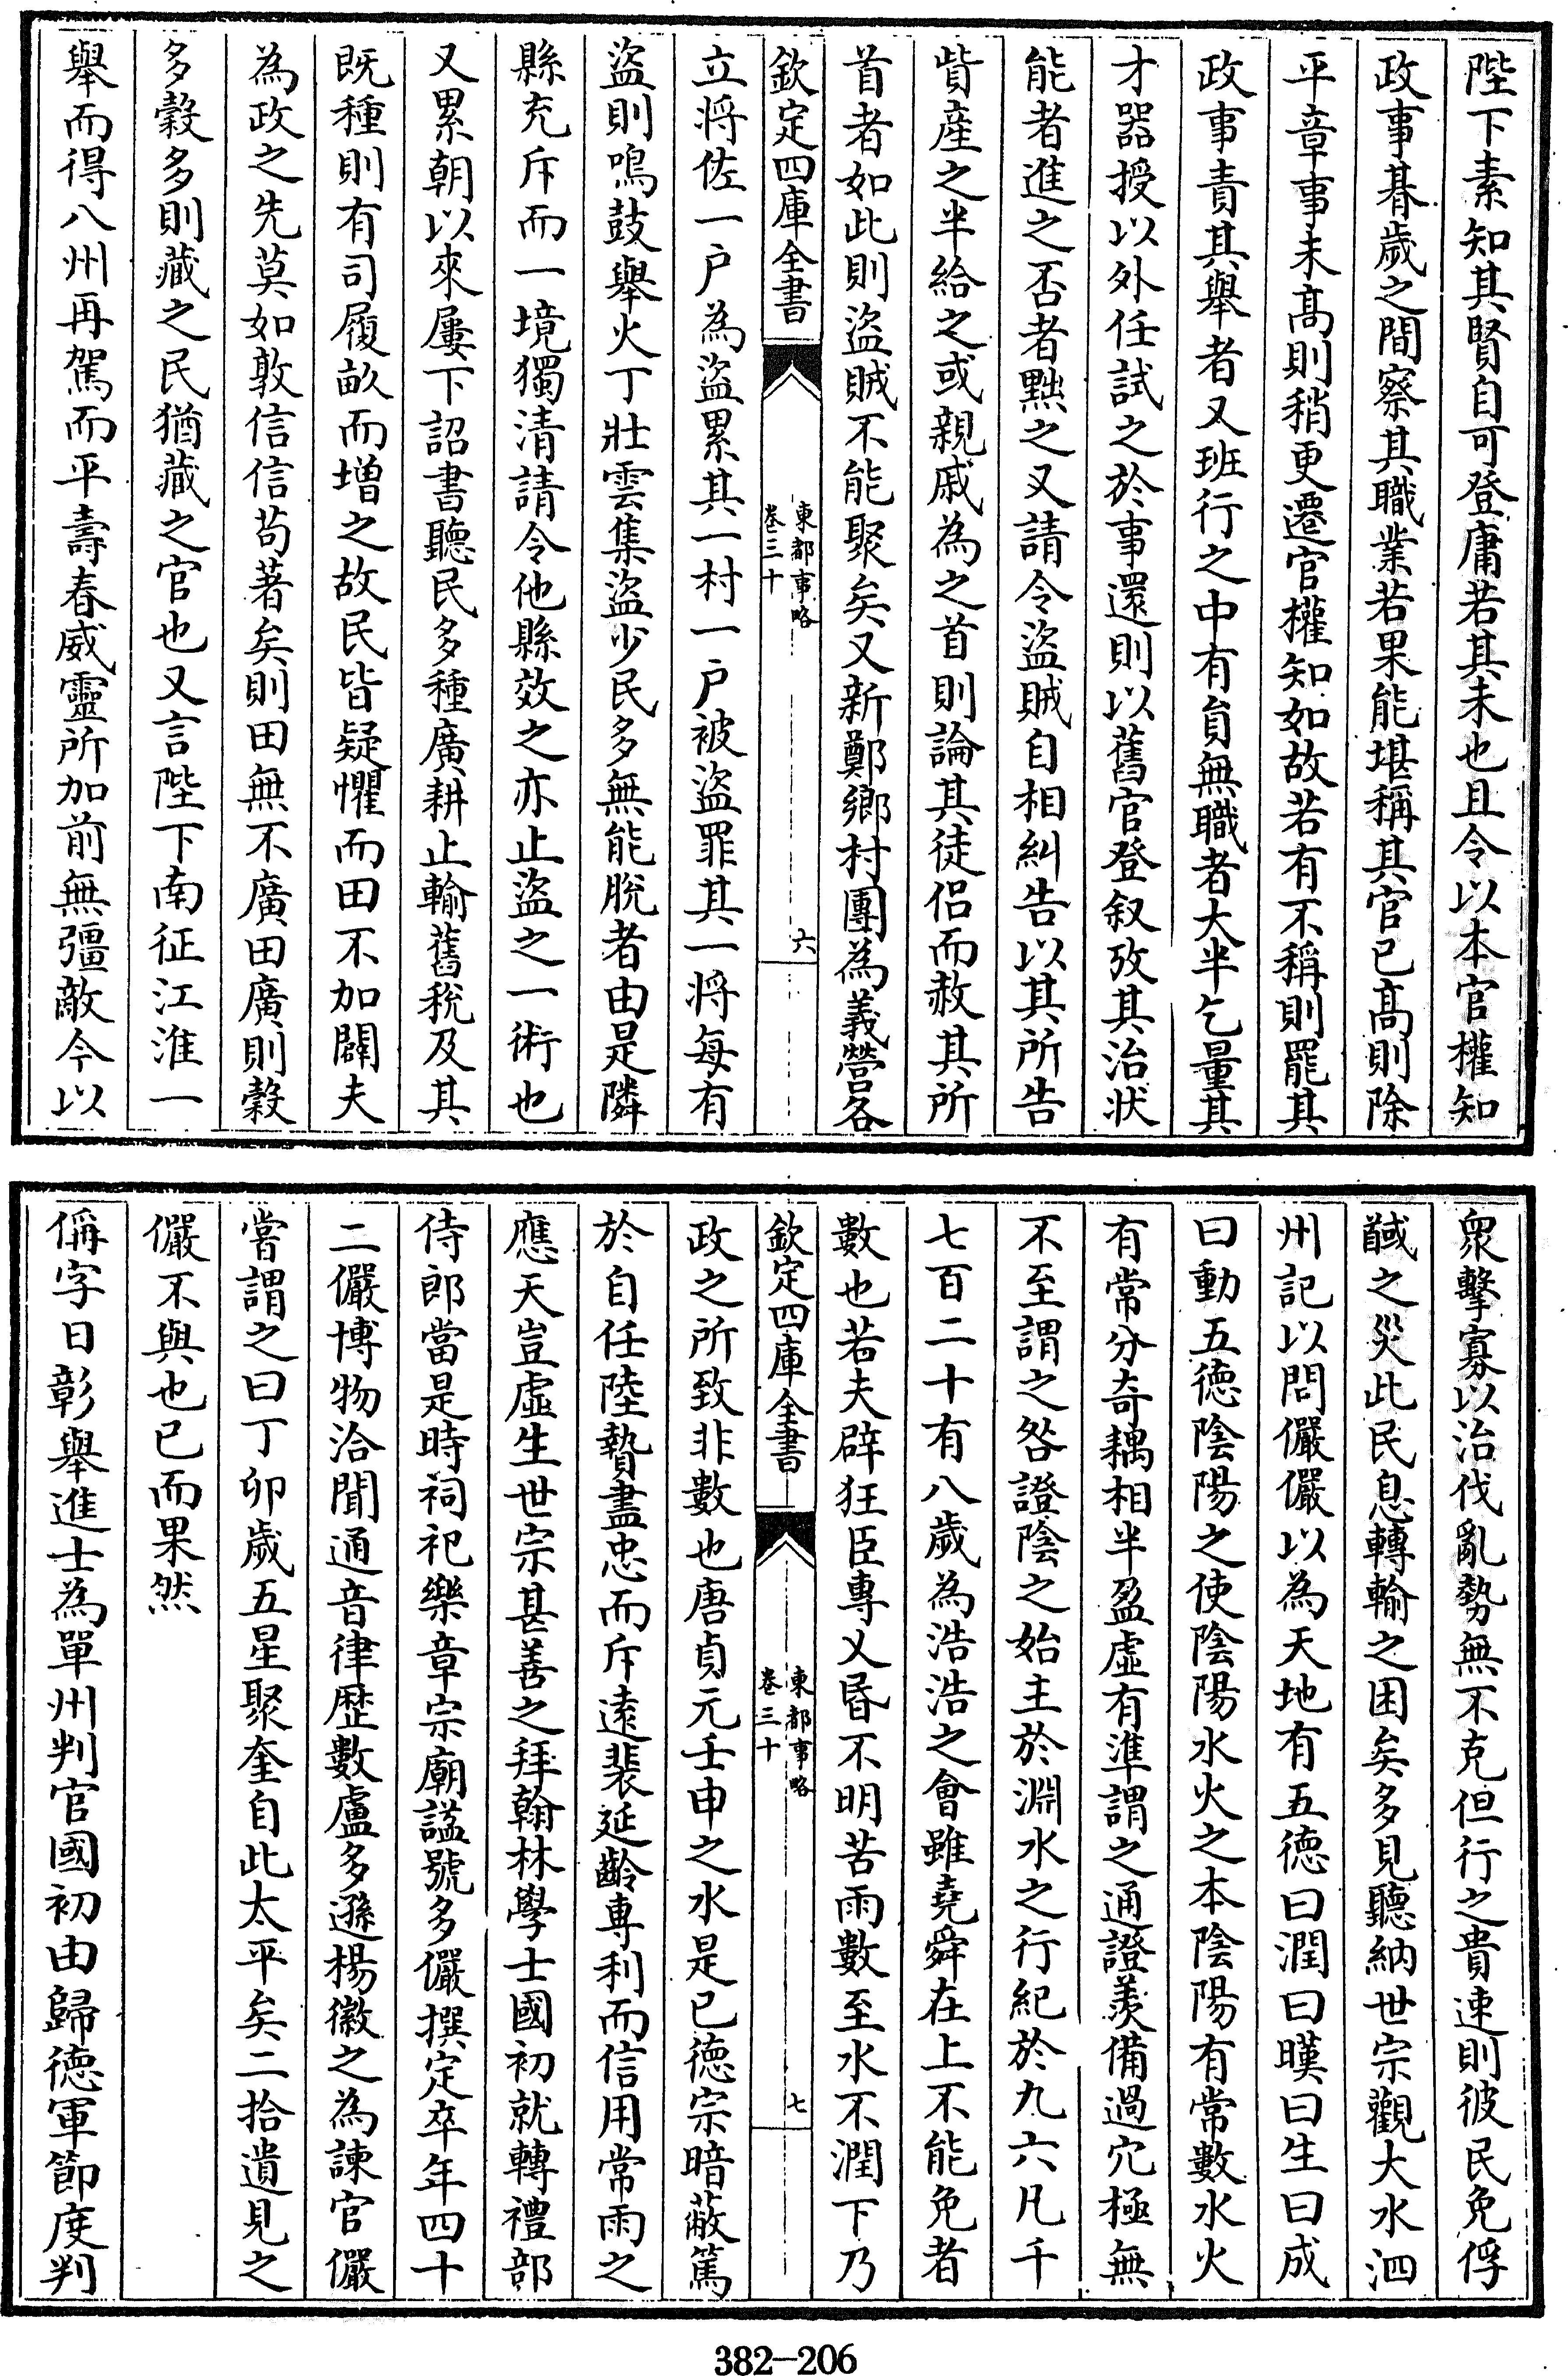 陛下素知其賢自可登庸若其未也且令以本官權知
政事朞歲之間察其職業若果能堪稱其官已髙則除
平章事未髙則稍更遷官權知如故若有不稱則罷其
政事責其舉者又班行之中有員無職者大半乞量其
才器授以外任試之於事還則以舊官登叙攷其治狀
能者進之否者黜之又請令盜賊自相糾告以其所告
貲産之半給之或親戚為之首則論其徒侣而赦其所
首者如此則盜賊不能聚矣又新鄭鄉村團為義營各
欽定四庫全書
東都事略
卷三十
六
立將佐一户為盜累其一村一户被盜罪其一將每有
盜則鳴鼓舉火丁壯雲集盜少民多無能脫者由是隣
縣充斥而一境獨清請令他縣效之亦止盜之一術也
又累朝以來屢下詔書聽民多種廣耕止輸舊稅及其
既種則有司履畝而增之故民皆疑懼而田不加闢夫
為政之先莫如敦信信茍著矣則田無不廣田廣則穀
多穀多則藏之民猶藏之官也又言陛下南征江淮一
舉而得八州再駕而平壽春威靈所加前無彊敵今以
衆擊寡以治伐亂勢無不克但行之貴速則彼民免俘
馘之災此民息轉輸之困矣多見聽納世宗觀大水泗
州記以問儼儼以為天地有五德曰潤曰暵曰生曰成
曰動五德陰陽之使陰陽水火之本陰陽有常數水火
有常分奇耦相半盈虛有準謂之通證羨備過亢極無
不至謂之咎證陰之始主於淵水之行紀於九六凡千
七百二十有八歲為浩浩之會雖堯舜在上不能免者
數也若夫辟狂臣專乂昬不明苦雨數至水不潤下乃
欽定四庫全書
東都事略
卷三十
七
政之所致非數也唐貞元壬申之水是已德宗暗蔽篤
於自任陸贄盡忠而斥逺裴延齡専利而信用常雨之
應天豈虛生世宗甚善之拜翰林學士國初就轉禮部
侍郎當是時祠祀樂章宗廟諡號多儼撰定卒年四十
二儼博物洽聞通音律厯數盧多遜楊徽之為諫官儼
嘗謂之曰丁卯歲五星聚奎自此太平矣二拾遺見之
儼不與也已而果然
偁字日彰舉進士為單州判官國初由歸德軍節度判
382-206